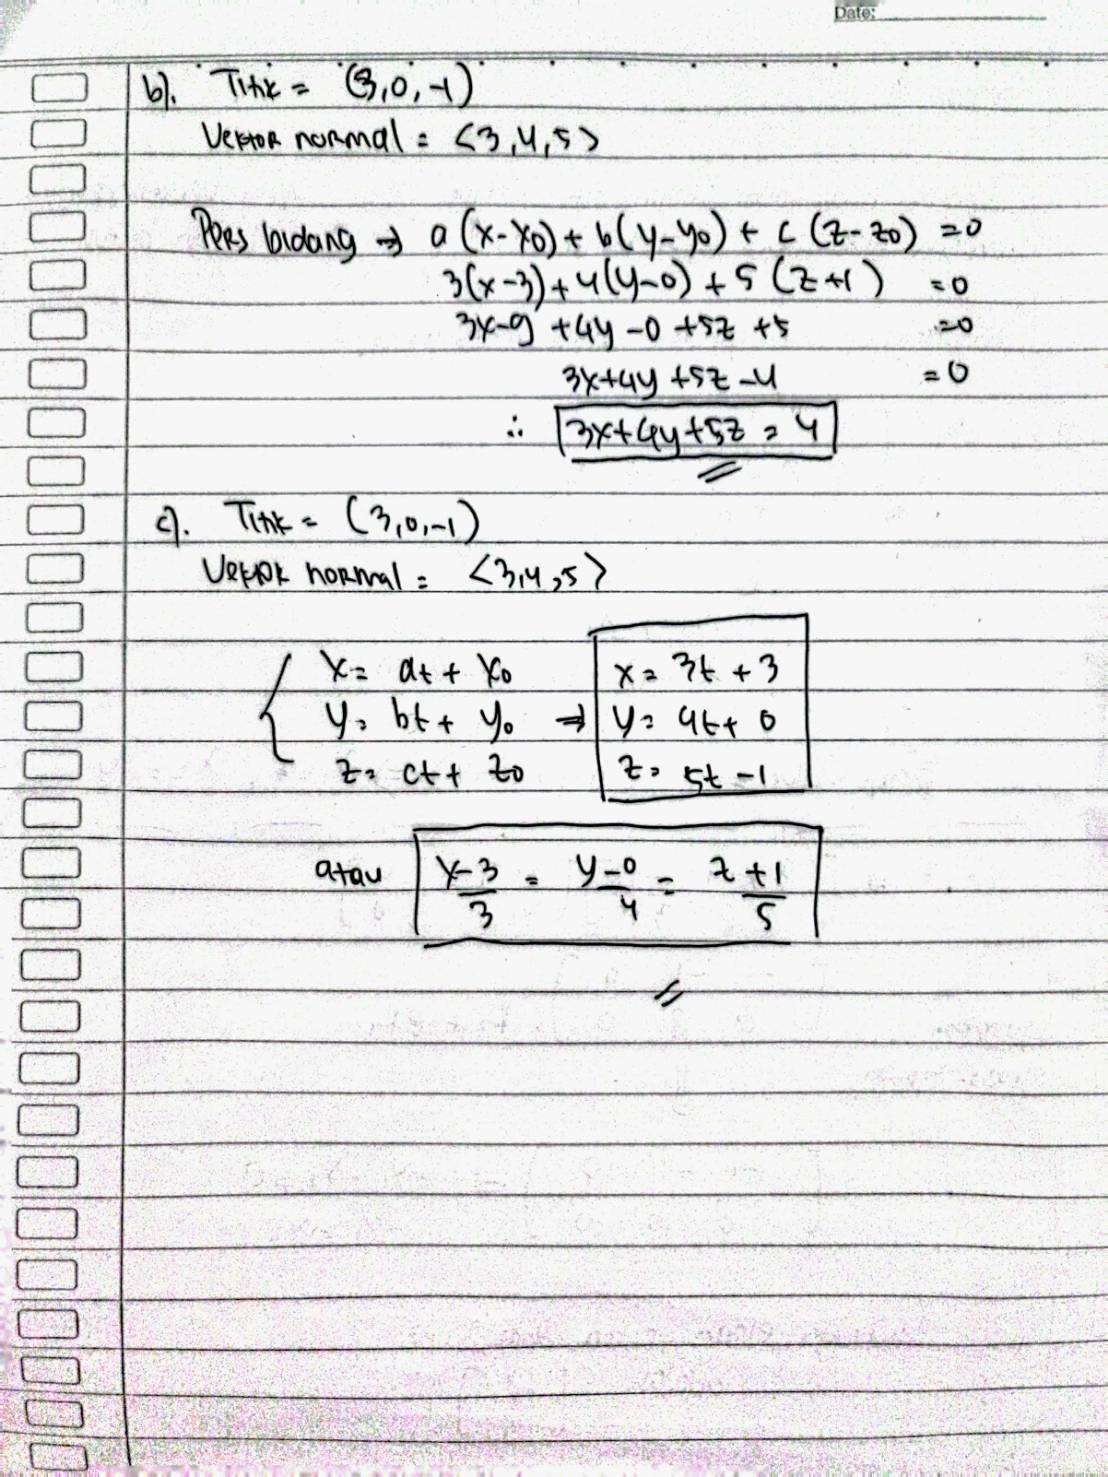 Date:
b). Titik = (3,0,-1)
Vektor normal = <3,4,5>
Pers bidang → a (x-x0) + b(y-y0) + c (z-z0) = 0
3(x-3) + 4(y-0) + 5 (z+1) = 0
3x-9 +4y -0 +5z +5 =0
3x+4y +5z -4 = 0
∴ 3x+4y+5z = 4
c). Titik = (3,0,-1)
Vektor normal = <3,4,5>
x = at + x0 ⇒ x = 3t + 3
y = bt + y0 y = 4t + 0
z = ct + z0 z = 5t - 1
atau x-3/3 = y-0/4 = z+1/5